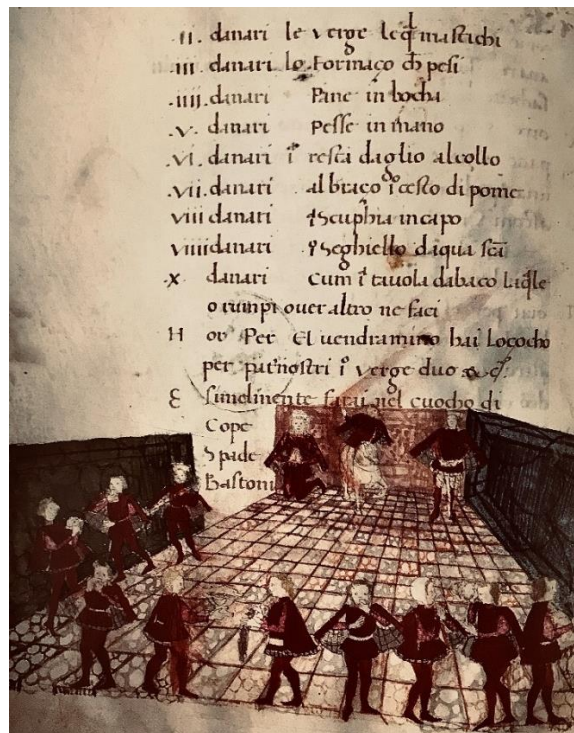 .II. danari le verge leq̃ mastichi
.III. danari lo formaço ch̃ pesi
.IIII. danari Pane in bocha
.V. danari Pesse in mano
.VI. danari ĩ resta daglio alcollo
.VII. danari al braço ĩ cesto di pome
VIII danari Scuphia in capo
VIIII danari Seghiello daqua scã
.X danari Cum ĩ tauola dabaco
o rumpi ouer altro ne faci
H or Per El uendramino hai Lococho
per pat'nostri verge duo
E simelmente farai nel cuocho di
Cope
Spade
Bastoni